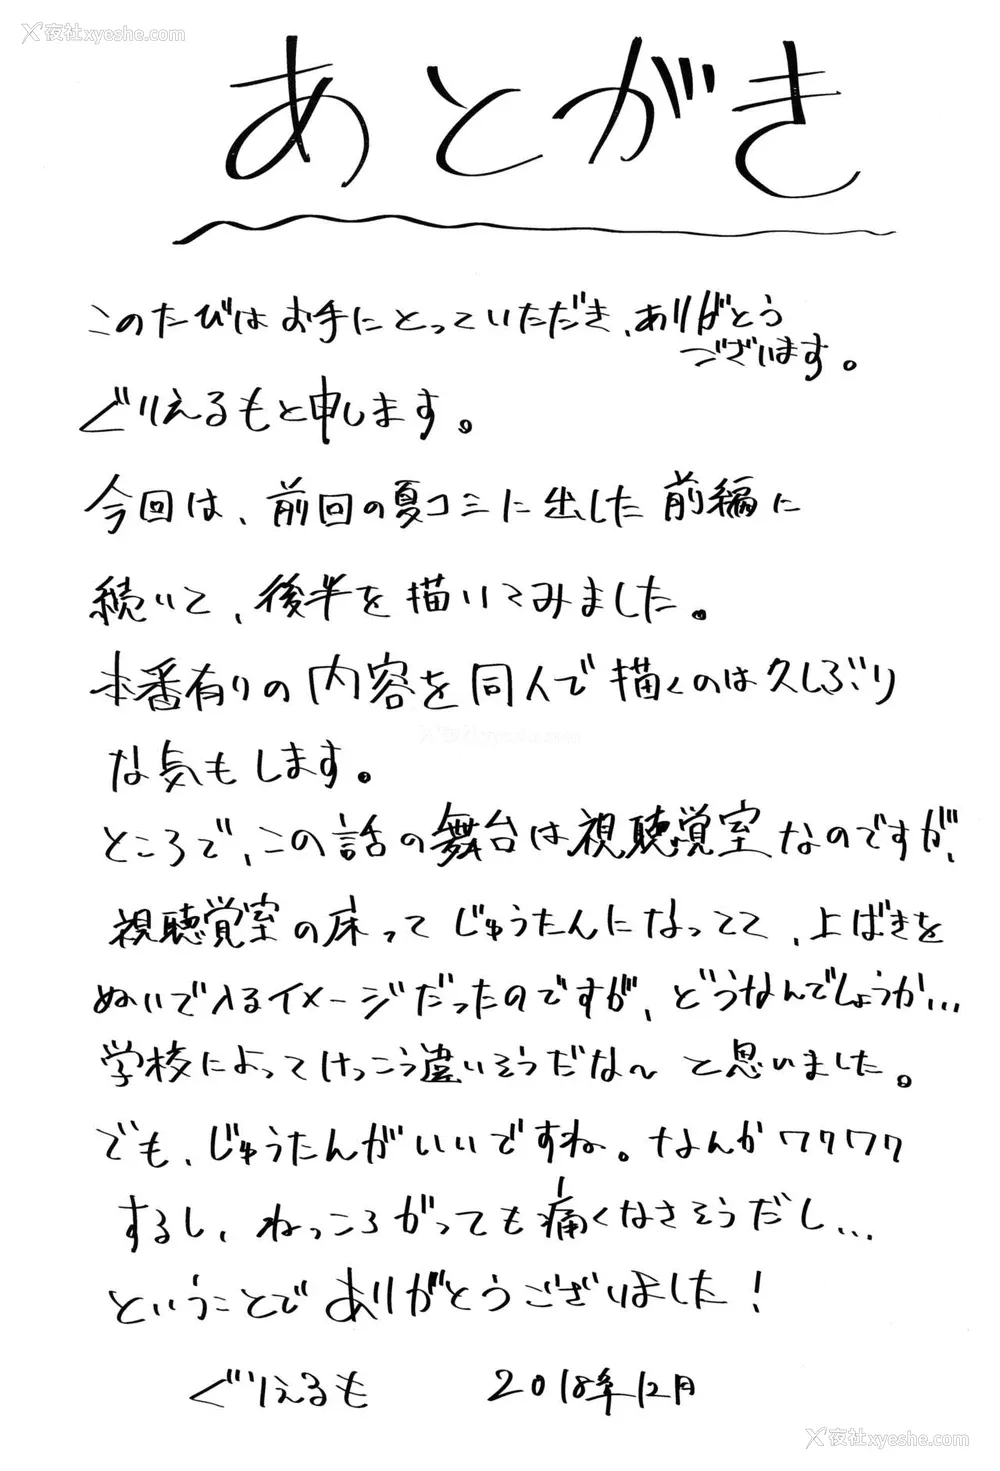 夜社xyeshe.com
あとがき
このたびはお手にとっていただき、ありがとう
ございます。
ぐりえるもと申します。
今回は、前回の夏コミに出した前編に
続いて、後半を描いてみました。
本番有りの内容を同人で描くのは久しぶり
な気もします。
ところで、この話の舞台は視聴覚室なのですが、
視聴覚室の床ってじゅうたんになってて、上ばきを
ぬいで入るイメージだったのですが、どうなんでしょうか…
学校によってけっこう違いそうだな〜と思いました。
でも、じゅうたんがいいですね。なんかワクワク
するし、ねっころがっても痛くなさそうだし…
ということでありがとうございました!
ぐりえるも 2018年12月
夜社xyeshe.com